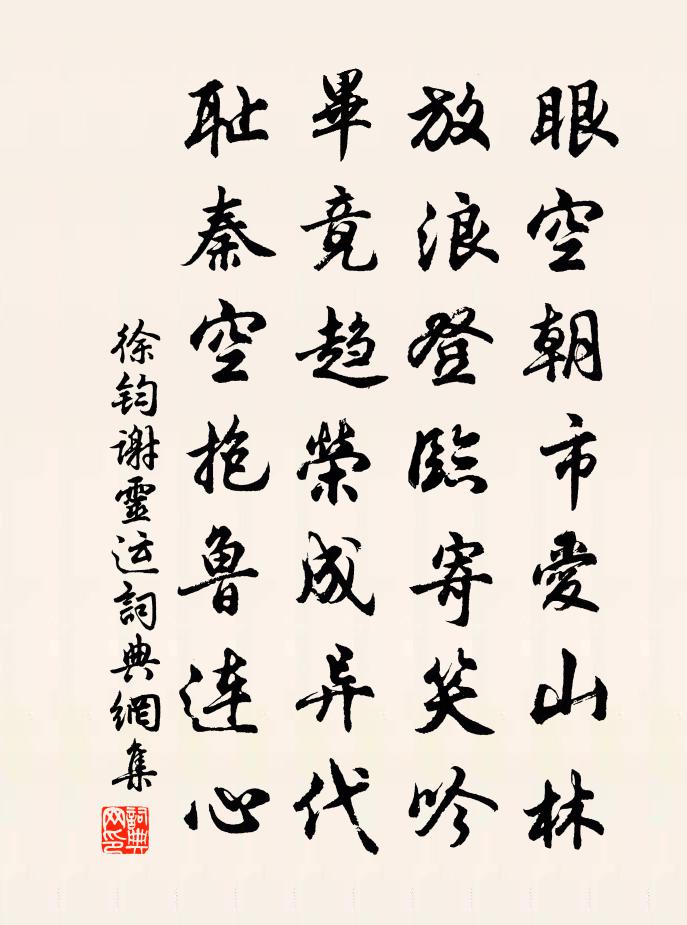 眼空朝市愛山林
放浪登臨寄笑吟
畢竟趋榮成异代
耻秦空抱鲁连心
徐鈞谢靈运詞典網集
詞典
网印